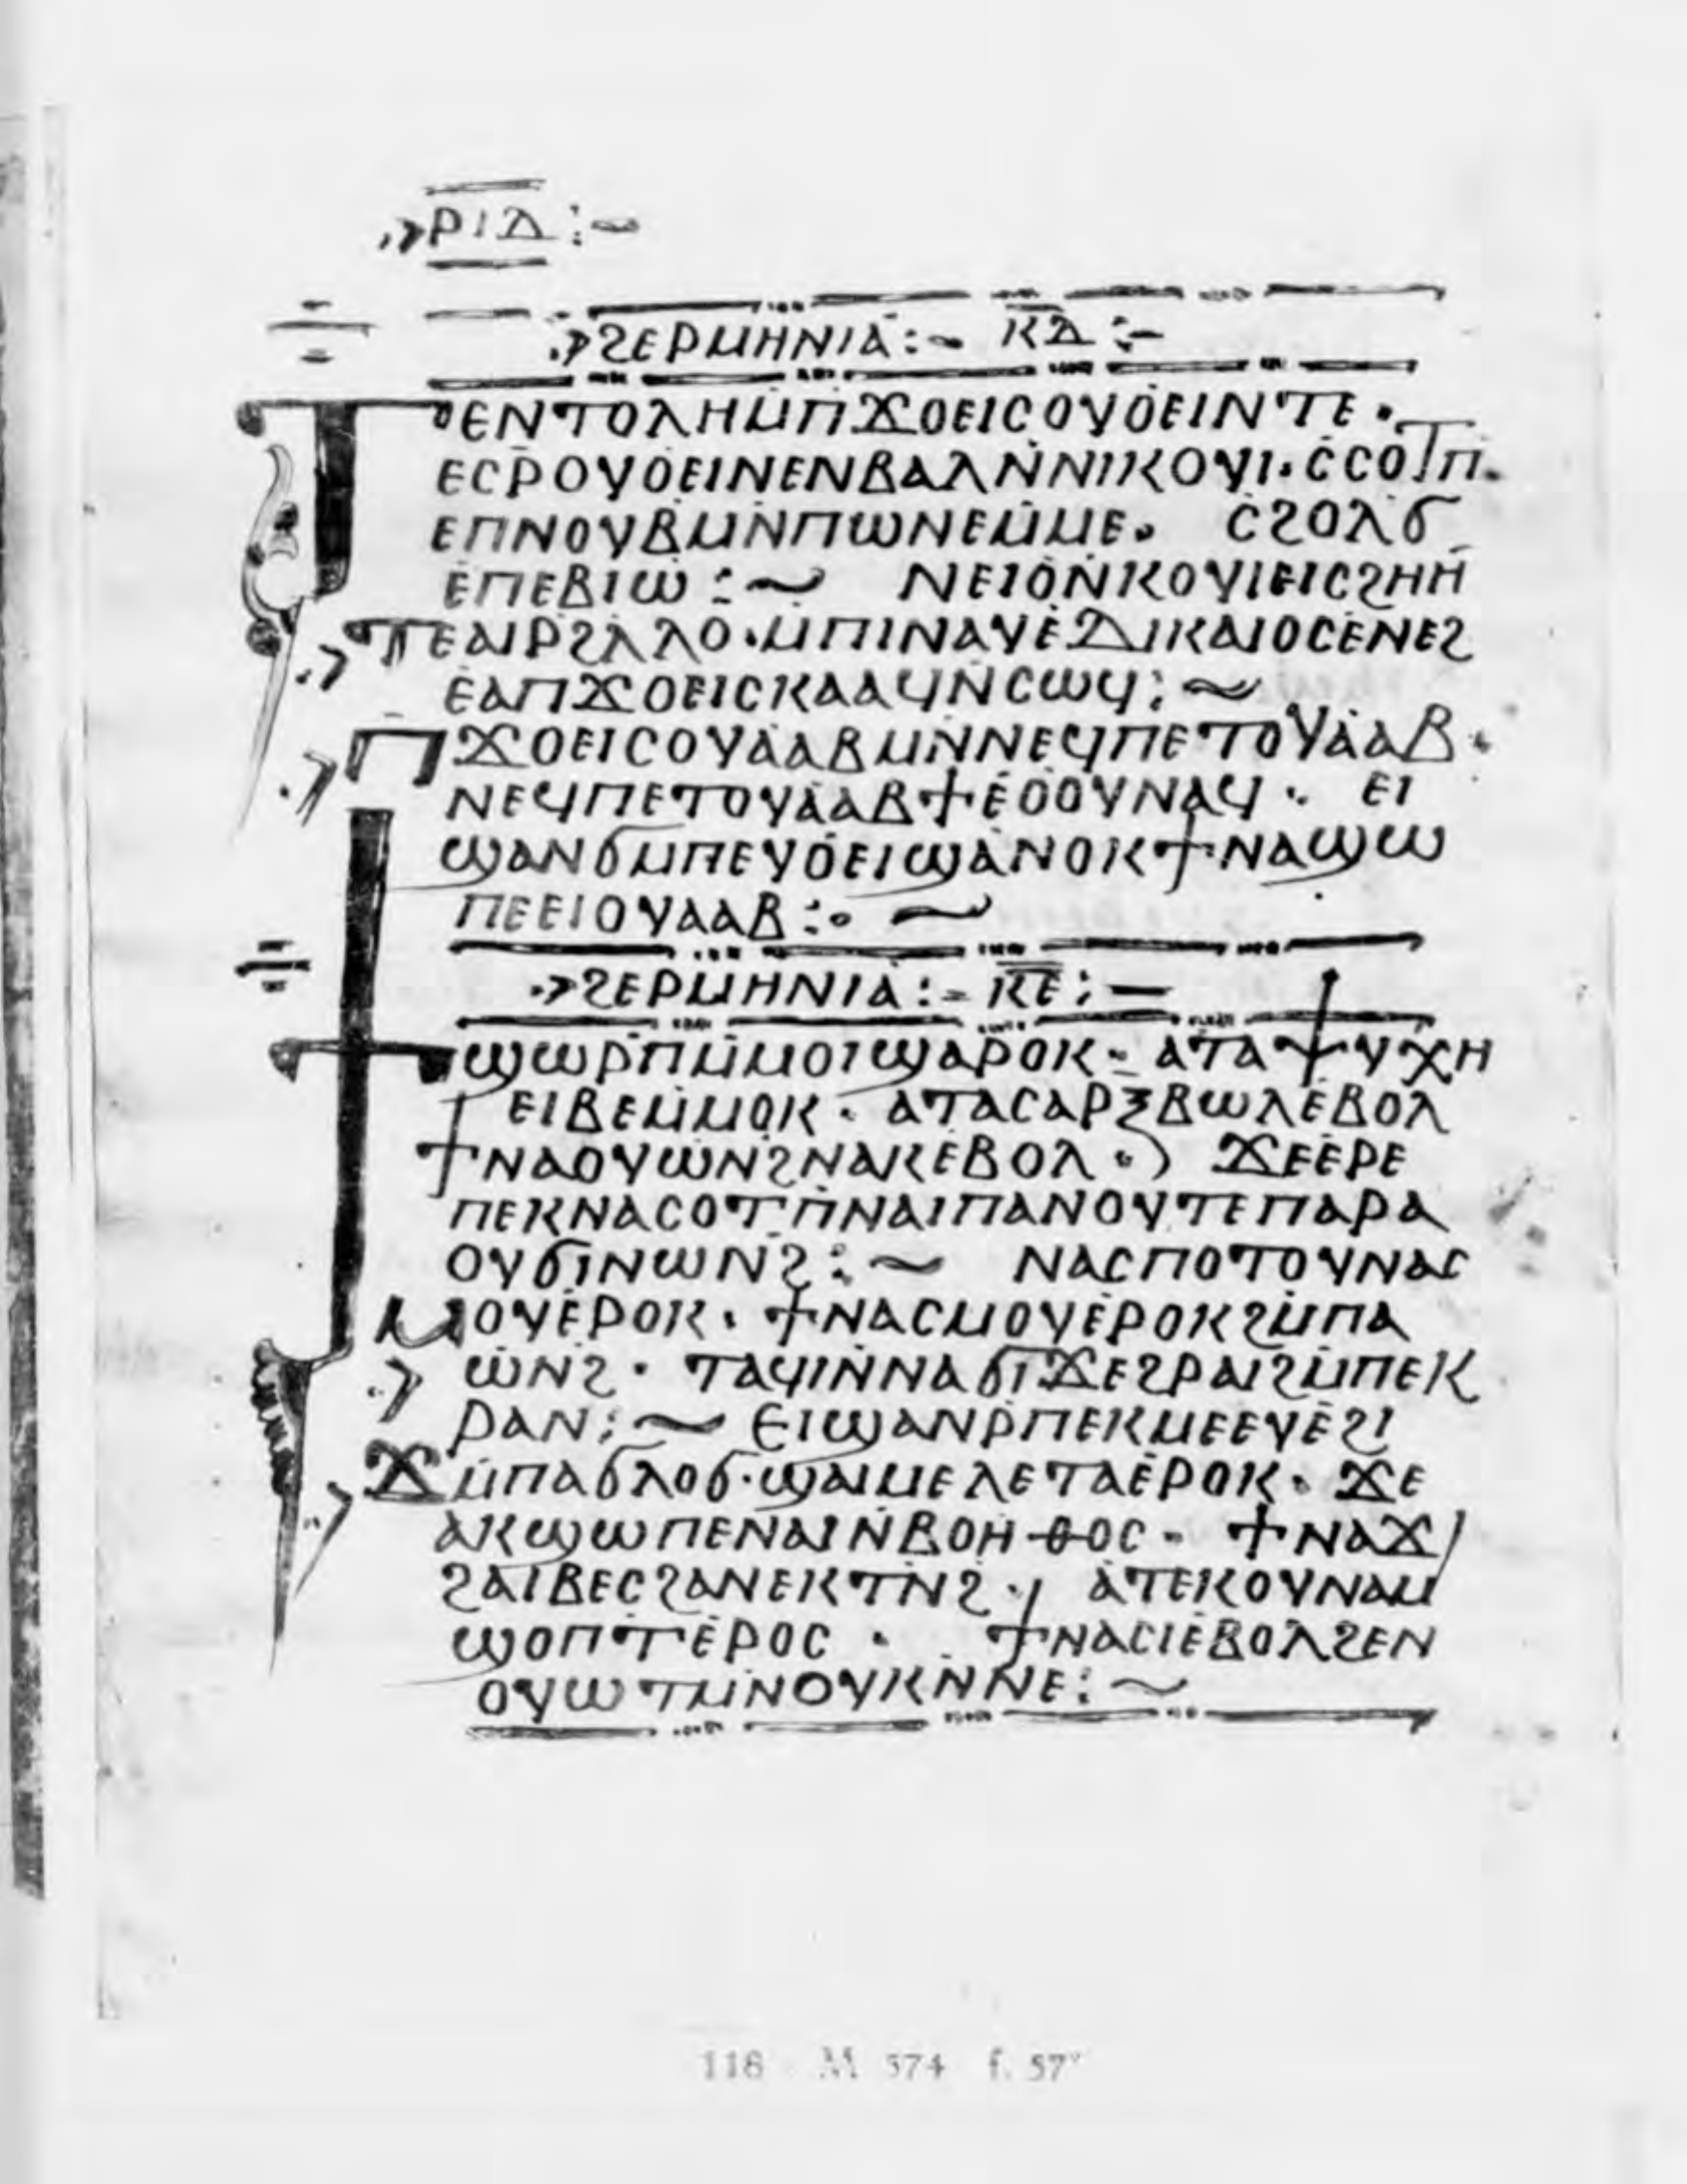 ⲢⲒⲆ :-
ϨⲈⲢⲘⲎⲚⲒⲀ :- ⲔⲆ :-
ⲦⲈⲚⲦⲞⲖⲎⲘⲠϪⲞⲈⲒⲤⲞⲨⲞⲈⲒⲚⲦⲈ ·
ⲈⲤⲢⲞⲨⲞⲈⲒⲚⲈⲚⲂⲀⲖⲚⲚⲒⲔⲞⲨⲒ · ⲤⲤⲞⲦⲠ ·
ⲈⲠⲚⲞⲨⲂⲘⲚⲠⲰⲚⲈⲘⲘⲈ · ⲤϨⲞⲖϬ
ⲈⲠⲈⲂⲒⲰ :~ ⲚⲈⲒⲞⲚⲔⲞⲨⲒⲈⲒⲤϨⲎⲎ
ⲦⲈⲀⲒⲢϨⲖⲖⲞ · ⲘⲠⲒⲚⲀⲨⲈⲆⲒⲔⲀⲒⲞⲤⲈⲚⲈϨ
ⲈⲀⲠϪⲞⲈⲒⲤⲔⲀⲀϤⲚⲤⲰϤ :~
ⲠϪⲞⲈⲒⲤⲞⲨⲀⲀⲂⲘⲚⲚⲈϤⲠⲈⲦⲞⲨⲀⲀⲂ ·
ⲚⲈϤⲠⲈⲦⲞⲨⲀⲀⲂϮⲈⲞⲞⲨⲚⲀϤ · ⲈⲒ
ϢⲀⲚϬⲘⲠⲈⲨⲞⲈⲒϢⲀⲚⲞⲔϮⲚⲀϢⲰ
ⲠⲈⲈⲒⲞⲨⲀⲀⲂ :· ~
ϨⲈⲢⲘⲎⲚⲒⲀ :- ⲔⲈ :-
ϮϢⲰⲢⲠⲘⲘⲞⲒϢⲀⲢⲞⲔ · ⲀⲦⲀⲮⲨⲬⲎ
ⲈⲒⲂⲈⲘⲘⲞⲔ · ⲀⲦⲀⲤⲀⲢⲜⲂⲰⲖⲈⲂⲞⲖ
ϮⲚⲀⲞⲨⲰⲚϨⲚⲀⲔⲈⲂⲞⲖ · ϪⲈⲈⲢⲈ
ⲠⲈⲔⲚⲀⲤⲞⲦⲠⲚⲀⲒⲠⲀⲚⲞⲨⲦⲈⲠⲀⲢⲀ
ⲞⲨϬⲒⲚⲰⲚϨ :~ ⲚⲀⲤⲠⲞⲦⲞⲨⲚⲀⲤ
ⲘⲞⲨⲈⲢⲞⲔ · ϮⲚⲀⲤⲘⲞⲨⲈⲢⲞⲔϨⲘⲠⲀ
ⲰⲚϨ · ⲦⲀϤⲒⲚⲚⲀϬⲒϪⲈϨⲢⲀⲒϨⲘⲠⲈⲔ
ⲢⲀⲚ :~ ⲈⲒϢⲀⲚⲢⲠⲈⲔⲘⲈⲈⲨⲈϨⲒ
ϪⲘⲠⲀϬⲖⲞϬ · ϢⲀⲒⲘⲈⲖⲈⲦⲀⲈⲢⲞⲔ · ϪⲈ
ⲀⲔϢⲰⲠⲈⲚⲀⲒⲚⲂⲞⲎⲐⲞⲤ · ϮⲚⲀϪ
ϨⲀⲒⲂⲈⲤϨⲀⲚⲈⲔⲦⲚϨ · ⲀⲦⲈⲔⲞⲨⲚⲀⲘ
ϢⲞⲠⲦⲈⲢⲞⲤ · ϮⲚⲀⲤⲒⲈⲂⲞⲖϨⲈⲚ
ⲞⲨⲰⲦⲘⲚⲞⲨⲔⲚⲚⲈ :~
118 M 574 f. 57v